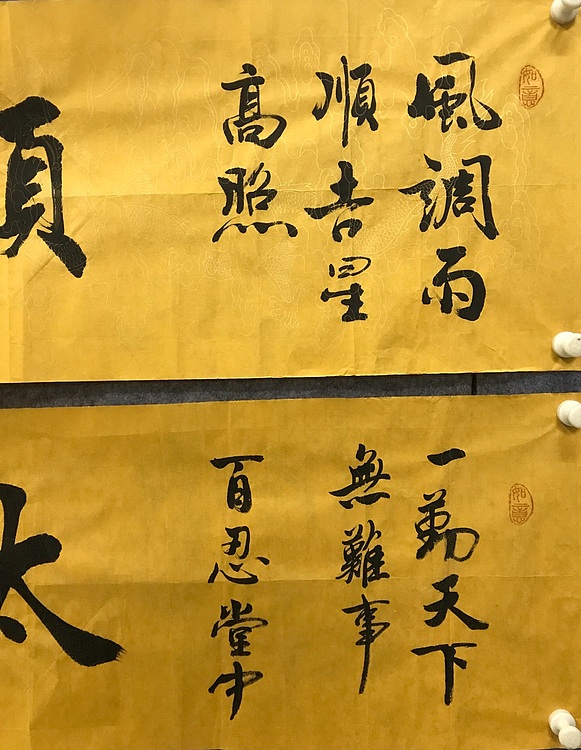 如意
風調雨
順吉星
高照
如意
一勤天下
無難事
百忍堂中